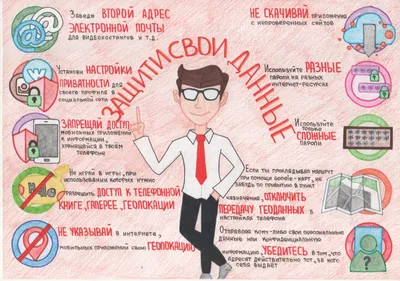 ЗАЩИТИ СВОИ ДАННЫЕ
Заведи ВТОРОЙ АДРЕС
ЭЛЕКТРОННОЙ ПОЧТЫ
для видеохостингов и т.д.
Установи НАСТРОЙКИ
ПРИВАТНОСТИ для
своего профиля в
социальной сети
ЗАПРЕЩАЙ ДОСТУП
мобильных приложений
к информации,
хранящейся в твоем
телефоне
Не играй в игры, при
использовании которых нужно
разрешить ДОСТУП К ТЕЛЕФОННОЙ
КНИГЕ, ГАЛЕРЕЕ, ГЕОЛОКАЦИИ
НЕ УКАЗЫВАЙ в интернете,
мобильных приложений свою ГЕОЛОКАЦИЮ
НЕ СКАЧИВАЙ приложения
с непроверенных сайтов
Используйте РАЗНЫЕ
пароли на разных
интернет-ресурсах
Используйте
только
СЛОЖНЫЕ
пароли
Если ты прикладывал маршрут
при помощи Google-карт, не
заведь по прибытию в пункт
назначения, ОТКЛЮЧИТЬ
ПЕРЕДАЧУ ГЕОДАННЫХ в
настройках телефона
Отправляя кому-либо свои персональные
данные или конфиденциальную
информацию, УБЕДИТЕСЬ в том, что
адресат действительно тот, за кого
себя выдает